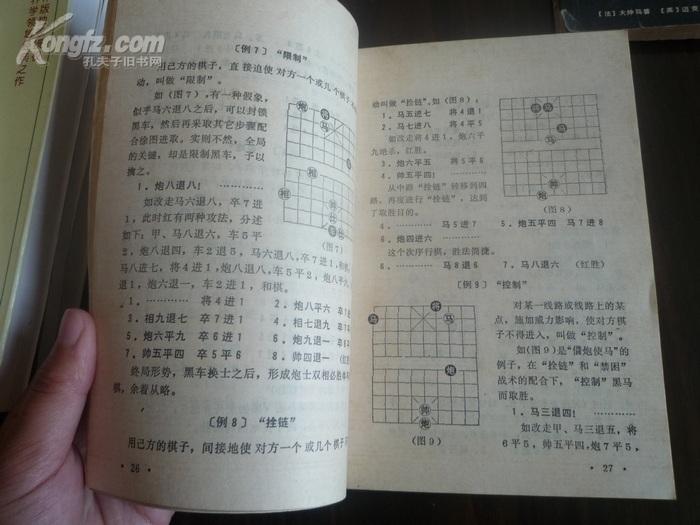 Kongfz.com
孔夫子旧书网
〔例7〕“限制”
用己方的棋子，直接迫使对方一个或几个棋子
动，叫做“限制”。
如（图7），有一种假象，
似乎马六退八之后，可以封锁
黑车，然后再采取其它步骤配
合徐图进取。实则不然，全局
的关键，却是限制黑车，予以
擒之。
1．炮八退八！…………
如改走马六退八，卒7进
1，此时红有两种攻法，分述
如下：甲、马八退六，车5平
2，炮八退四，车2退5，马六退八，卒7进1，和棋。
马八进七，将4进1，炮八退五，车5平2，炮八平六
炮六退一，车2进1，和棋。
1．………… 将4进1
2．炮八平六 卒7
3．相九退七 卒7进1
4．相七退九 卒7
5．炮六平九 卒6进1
6．炮九退一 卒
7．帅五平四 卒5平6
8．帅四退一
终局形势，黑车换士之后，形成炮士双相必胜
棋，余着从略。
〔例8〕“拴链”
用己方的棋子，间接地使对方一个或几个棋子
炮 将 马 相 相 帅
（图7）
· 26 ·
〔法〕大仲马著
动叫做“拴链”，如（图8）：
1．马五进七 将4退1
2．马七进八 将4平5
如改走将4进1，炮六平
九绝杀，红胜。
3．炮六平五 将5平6
4．帅五平四！…………
从中路“拴链”转移到四
路，再度进行“拴链”，达到
了取胜目的。
（图8）
4．………… 马5进7
5．炮五平四 马7进8
6．炮四进六
这个次序行棋，胜法简捷。
6．………… 马8退6
7．马八退六 （红胜）
〔例9〕“控制”
对某一线路或线路上的某
点，施加威力影响，使对方棋
子不得进入，叫做“控制”。
如（图9）是“借炮使马”的
例子，在“拴链”和“禁困”
战术的配合下，“控制”黑马
而取胜。
马 将 马 炮 帅 炮
（图9）
1．马三退四！…………
如改走甲、马三退五，将
6平5，帅五平四，炮7平5，
· 27 ·